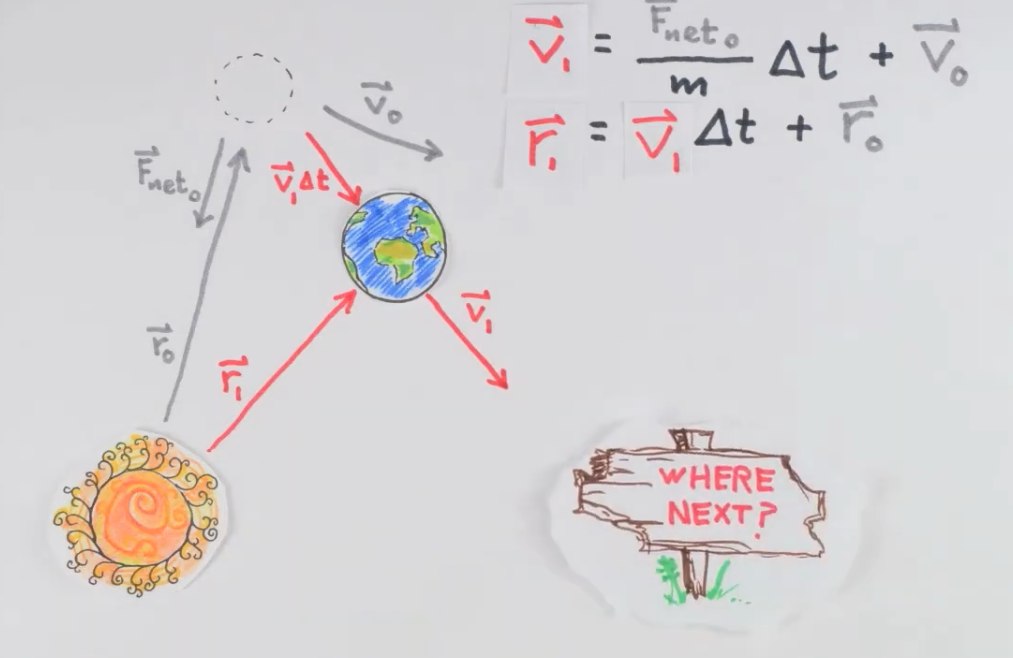 v⃗₁ = F⃗net₀/m Δt + v⃗₀
r⃗₁ = v⃗₁ Δt + r⃗₀
v⃗₀
F⃗net₀
v⃗₁Δt
v⃗₁
r⃗₀
r⃗₁
WHERE
NEXT?